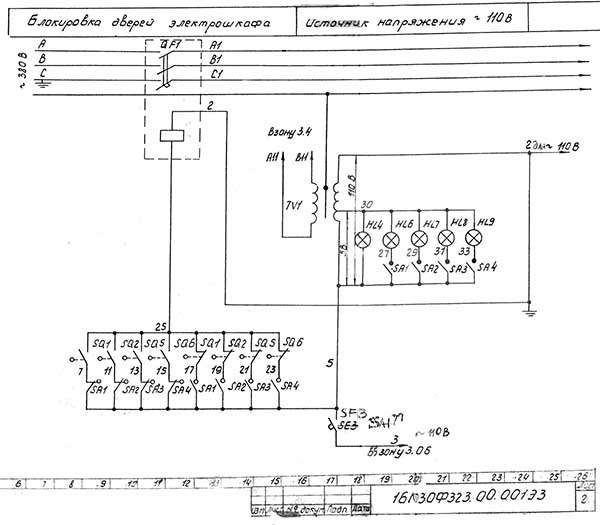 Блокировка дверей электрошкафа
Источник напряжения ~ 110 В
~ 380 В
A
B
C
QF1
A1
B1
C1
2
В зону 3.4
A11
B11
TV1
110 В
5В
30
HL4
HL6
HL7
HL8
HL9
27
29
31
33
SA1
SA2
SA3
SA4
2 для ~ 110 В
25
5
SQ1
SQ2
SQ5
SQ6
SQ1
SQ2
SQ5
SQ6
7
11
13
15
17
19
21
23
SA1
SA2
SA3
SA4
SA1
SA2
SA3
SA4
SF3
3
~ 110 В
В зону 3.06
6 7 8 9 10 11 12 13 14 15 16 17 18 19 20 21 22 23 24 25 26
Изм Лист № докум Подп. Дата
16М30Ф323.00.001Э3
Лист
2